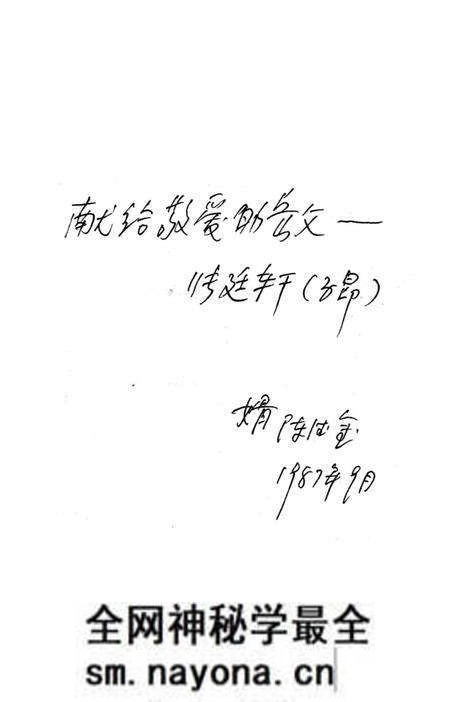 献给敬爱的岳父——
廷轩(子昂)
婿 陈 金
1987年9月
全网神秘学最全
sm.nayona.cn